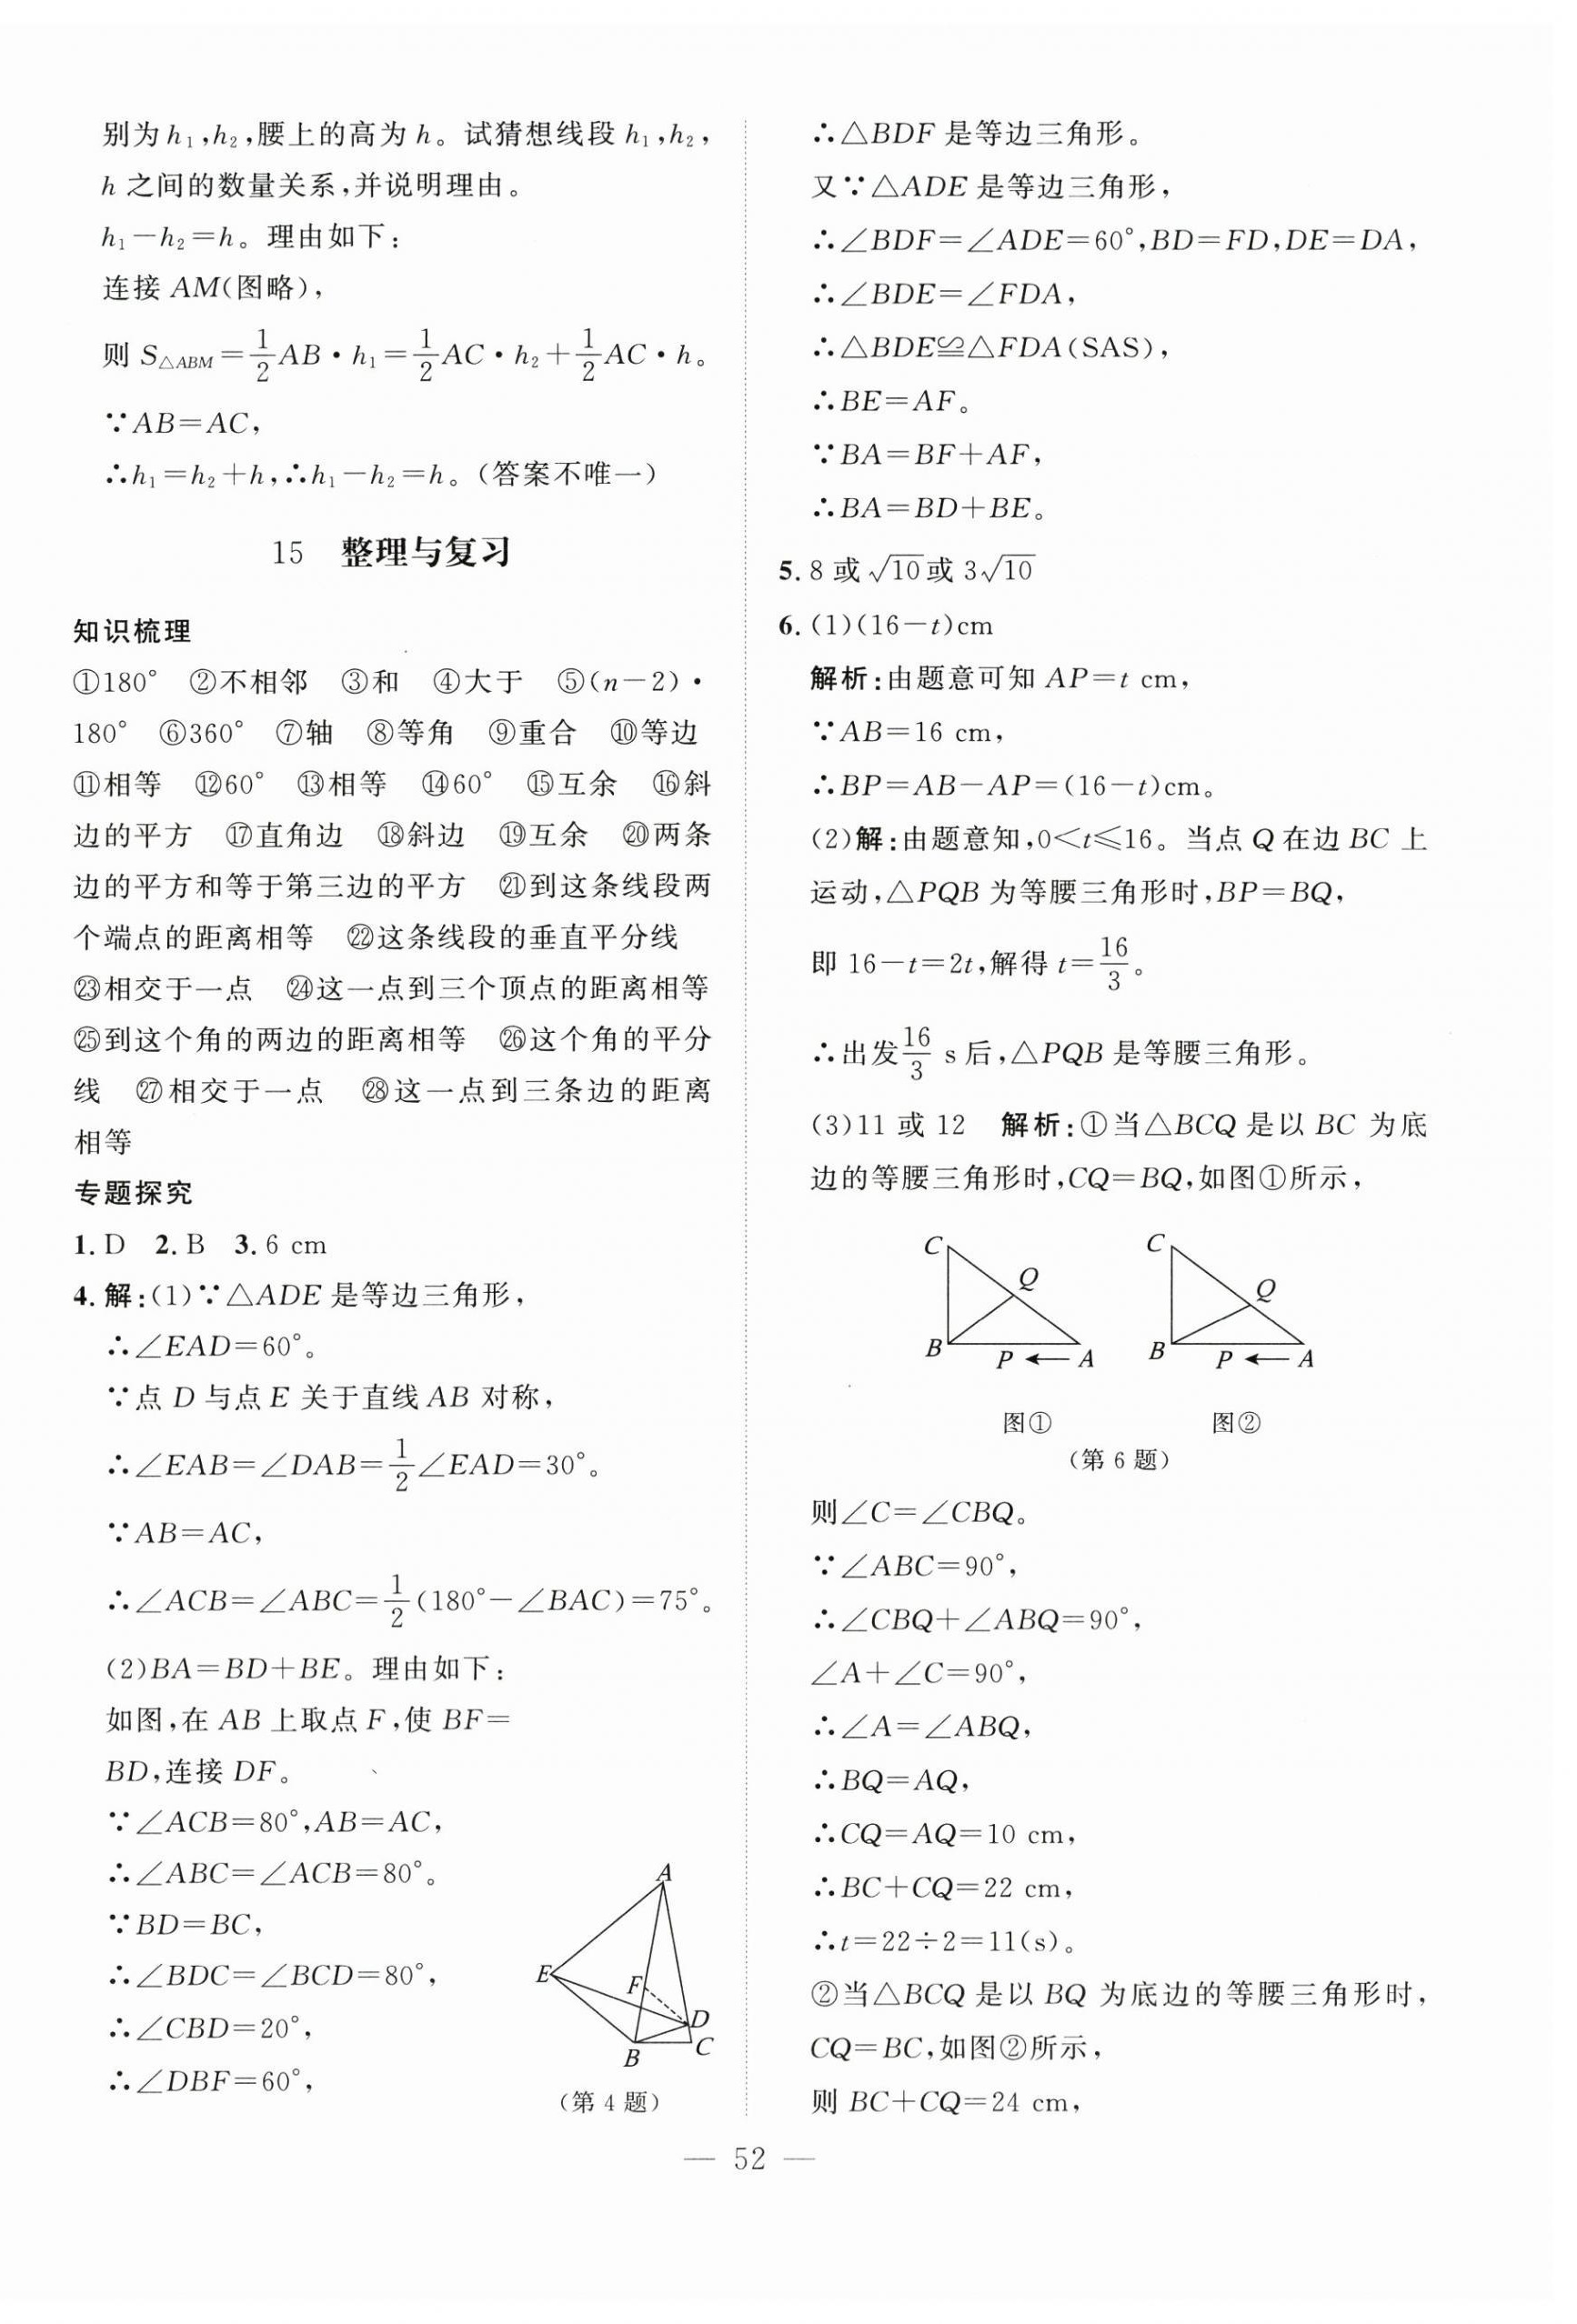 别为 h₁,h₂,腰上的高为 h。试猜想线段 h₁,h₂,
h 之间的数量关系,并说明理由。
h₁－h₂＝h。理由如下:
连接 AM(图略),
则 S△ABM＝1/2 AB·h₁＝1/2 AC·h₂＋1/2 AC·h。
∵AB＝AC,
∴h₁＝h₂＋h,∴h₁－h₂＝h。(答案不唯一)
15 整理与复习
知识梳理
①180° ②不相邻 ③和 ④大于 ⑤(n－2)·
180° ⑥360° ⑦轴 ⑧等角 ⑨重合 ⑩等边
⑪相等 ⑫60° ⑬相等 ⑭60° ⑮互余 ⑯斜
边的平方 ⑰直角边 ⑱斜边 ⑲互余 ⑳两条
边的平方和等于第三边的平方 ㉑到这条线段两
个端点的距离相等 ㉒这条线段的垂直平分线
㉓相交于一点 ㉔这一点到三个顶点的距离相等
㉕到这个角的两边的距离相等 ㉖这个角的平分
线 ㉗相交于一点 ㉘这一点到三条边的距离
相等
专题探究
1. D 2. B 3. 6 cm
4. 解:(1)∵△ADE 是等边三角形,
∴∠EAD＝60°。
∵点 D 与点 E 关于直线 AB 对称,
∴∠EAB＝∠DAB＝1/2∠EAD＝30°。
∵AB＝AC,
∴∠ACB＝∠ABC＝1/2(180°－∠BAC)＝75°。
(2)BA＝BD＋BE。理由如下:
如图,在 AB 上取点 F,使 BF＝
BD,连接 DF。
∵∠ACB＝80°,AB＝AC,
∴∠ABC＝∠ACB＝80°。
∵BD＝BC,
∴∠BDC＝∠BCD＝80°,
∴∠CBD＝20°,
∴∠DBF＝60°,
A
E
F
D
B
C
(第 4 题)
∴△BDF 是等边三角形。
又∵△ADE 是等边三角形,
∴∠BDF＝∠ADE＝60°,BD＝FD,DE＝DA,
∴∠BDE＝∠FDA,
∴△BDE≌△FDA(SAS),
∴BE＝AF。
∵BA＝BF＋AF,
∴BA＝BD＋BE。
5. 8 或 √10 或 3√10
6. (1)(16－t)cm
解析:由题意可知 AP＝t cm,
∵AB＝16 cm,
∴BP＝AB－AP＝(16－t)cm。
(2)解:由题意知,0＜t≤16。当点 Q 在边 BC 上
运动,△PQB 为等腰三角形时,BP＝BQ,
即 16－t＝2t,解得 t＝16/3。
∴出发 16/3 s 后,△PQB 是等腰三角形。
(3)11 或 12 解析:①当△BCQ 是以 BC 为底
边的等腰三角形时,CQ＝BQ,如图①所示,
C Q B P ← A
C Q B P ← A
图① 图②
(第 6 题)
则∠C＝∠CBQ。
∵∠ABC＝90°,
∴∠CBQ＋∠ABQ＝90°,
∠A＋∠C＝90°,
∴∠A＝∠ABQ,
∴BQ＝AQ,
∴CQ＝AQ＝10 cm,
∴BC＋CQ＝22 cm,
∴t＝22÷2＝11(s)。
②当△BCQ 是以 BQ 为底边的等腰三角形时,
CQ＝BC,如图②所示,
则 BC＋CQ＝24 cm,
— 52 —